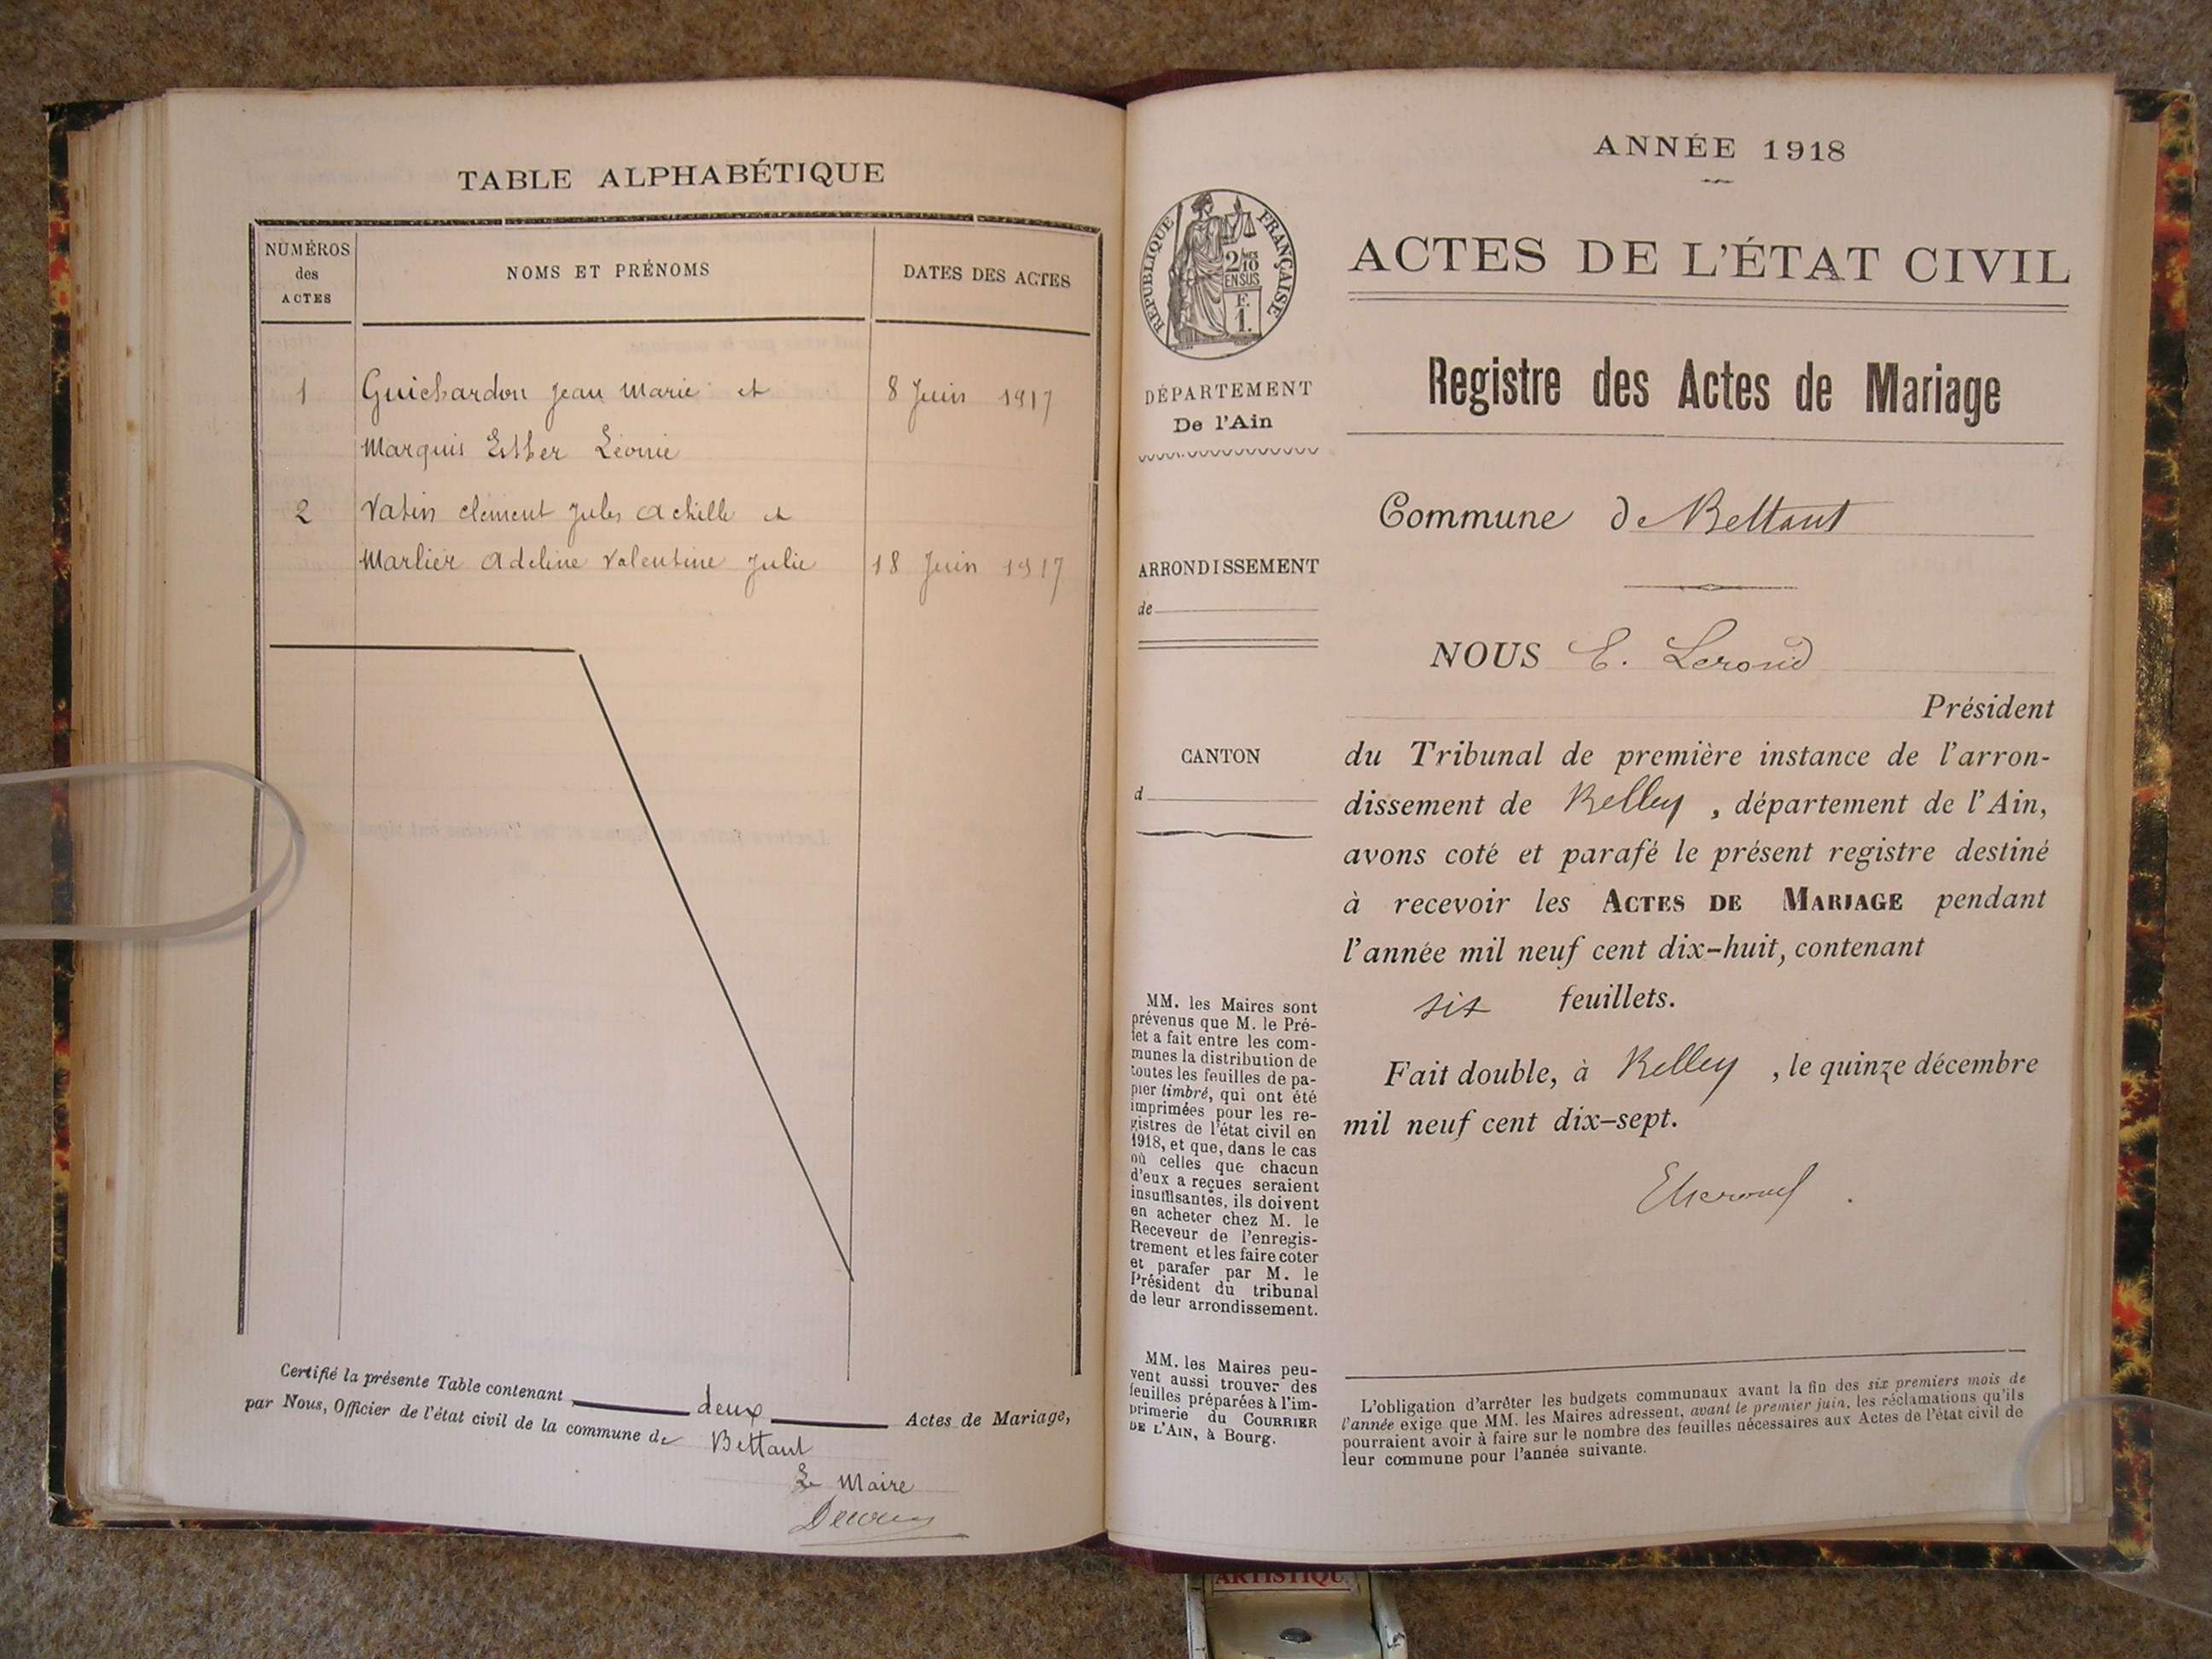 TABLE ALPHABÉTIQUE
NUMÉROS
des
ACTES
NOMS ET PRÉNOMS
DATES DES ACTES
1 Guichardon Jean Marie et 8 Juin 1917
Marquis Esther Léonie
2 Vatin Clément Jules Achille et
Marlier Adeline Valentine Julie 18 Juin 1917
Certifié la présente Table contenant deux Actes de Mariage,
par Nous, Officier de l'état civil de la commune de Bettant
Le Maire
ANNÉE 1918
RÉPUBLIQUE FRANÇAISE
2/10
EN SUS
F.
1.
DÉPARTEMENT
De l'Ain
ARRONDISSEMENT
de
CANTON
d
MM. les Maires sont
prévenus que M. le Pré-
fet a fait entre les com-
munes la distribution de
toutes les feuilles de pa-
pier timbré, qui ont été
imprimées pour les re-
gistres de l'état civil en
1918, et que, dans le cas
où celles que chacun
d'eux a reçues seraient
insuffisantes, ils doivent
en acheter chez M. le
Receveur de l'enregis-
trement et les faire coter
et parafer par M. le
Président du tribunal
de leur arrondissement.
MM. les Maires peu-
vent aussi trouver des
feuilles préparées à l'im-
primerie du COURRIER
DE L'AIN, à Bourg.
ACTES DE L'ÉTAT CIVIL
Registre des Actes de Mariage
Commune de Bettant
NOUS E. Lerond
Président
du Tribunal de première instance de l'arron-
dissement de Belley, département de l'Ain,
avons coté et parafé le présent registre destiné
à recevoir les ACTES DE MARIAGE pendant
l'année mil neuf cent dix-huit, contenant
six feuillets.
Fait double, à Belley, le quinze décembre
mil neuf cent dix-sept.
ELerond
L'obligation d'arrêter les budgets communaux avant la fin des six premiers mois de
l'année exige que MM. les Maires adressent, avant le premier juin, les réclamations qu'ils
pourraient avoir à faire sur le nombre des feuilles nécessaires aux Actes de l'état civil de
leur commune pour l'année suivante.
ARTISTIQU